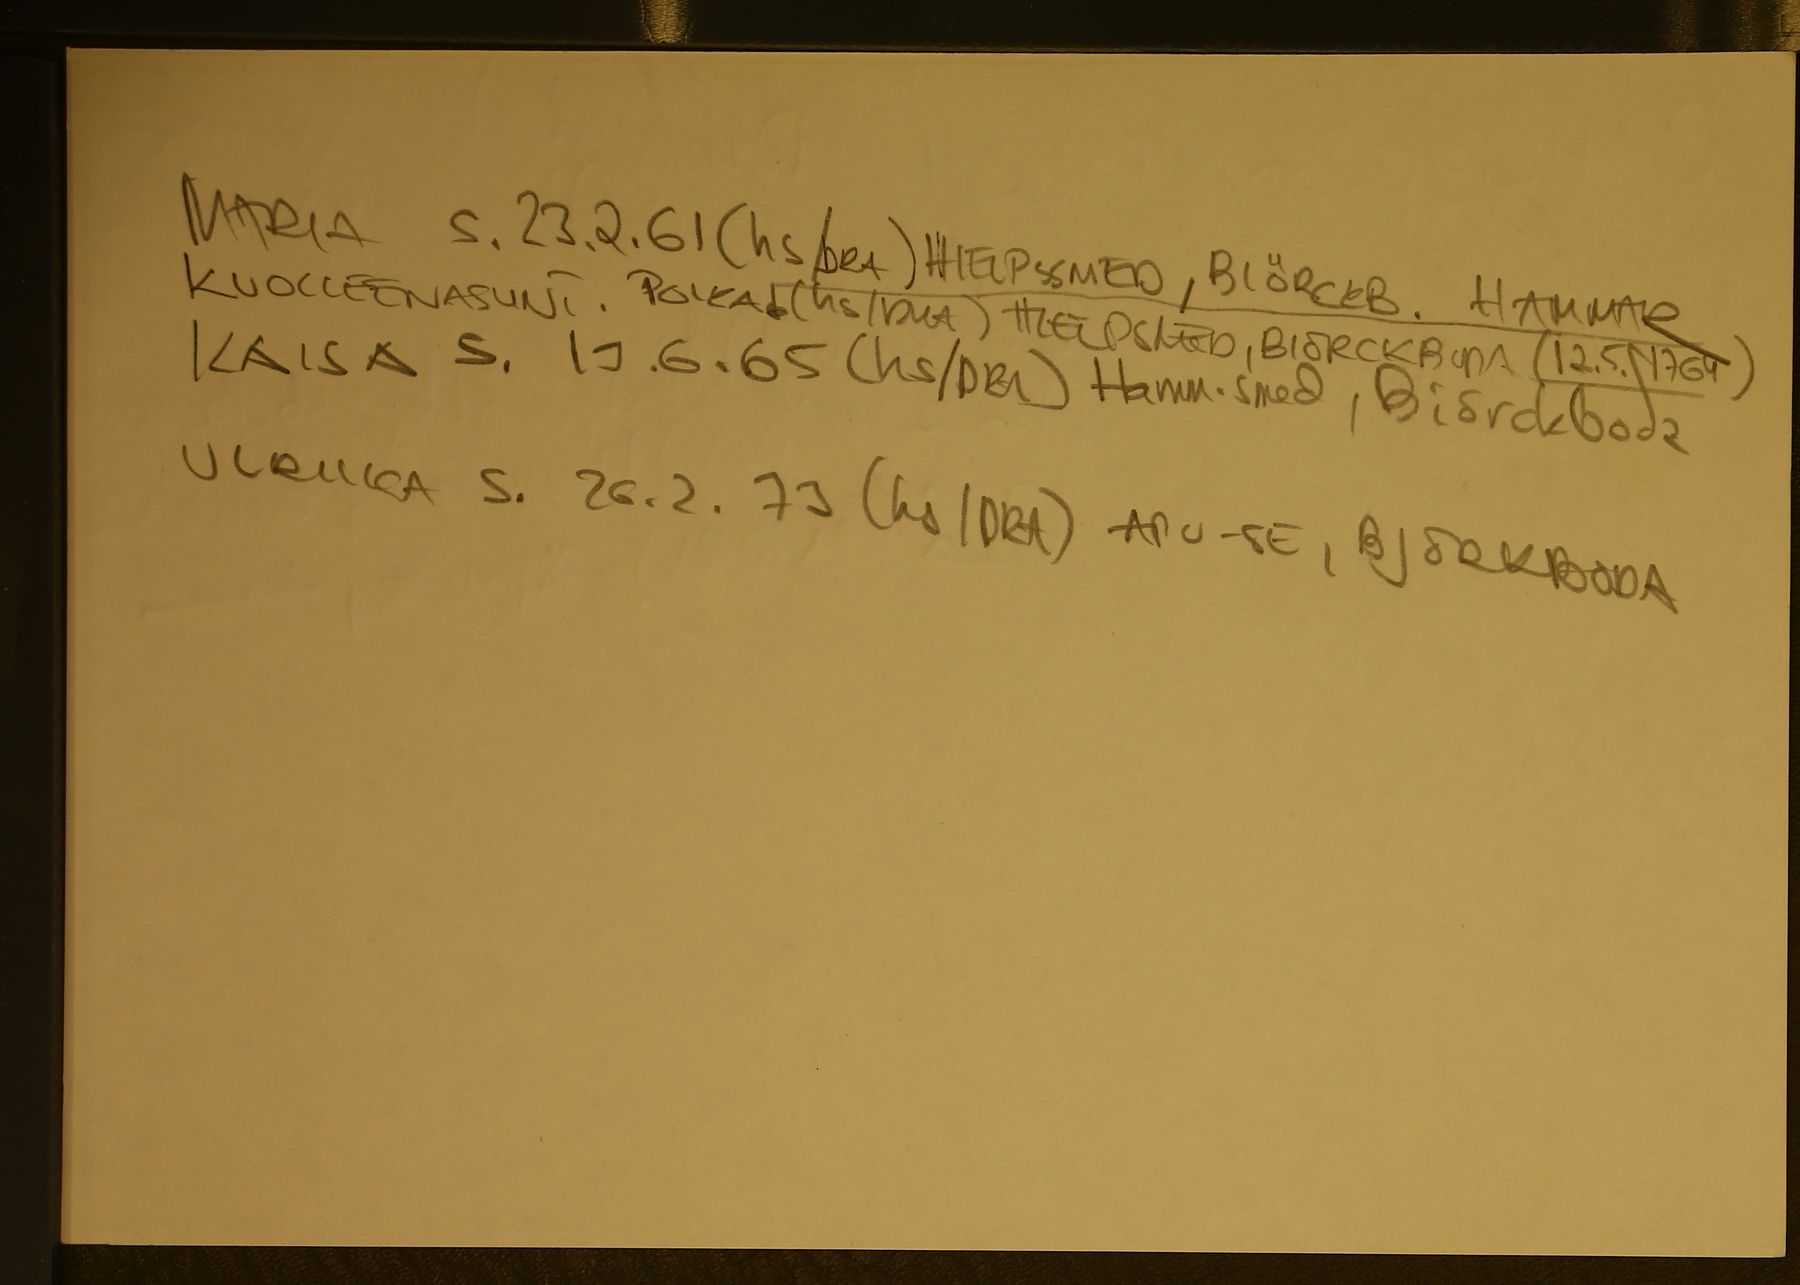 MARIA S. 23.2.61 (hs/DRA) HIELPSSMED, BIÖRCKB. HAMMAR
KUOLLEENASYNT. POIKA (hs/DRA) HIELPSMED, BIÖRCKBODA (12.5.1764)
KAISA S. 19.6.65 (hs/DRA) Hamm.smed, Biörckboda
ULRIIKA S. 26.2.73 (hs/DRA) APU-SE, BJÖRKBODA